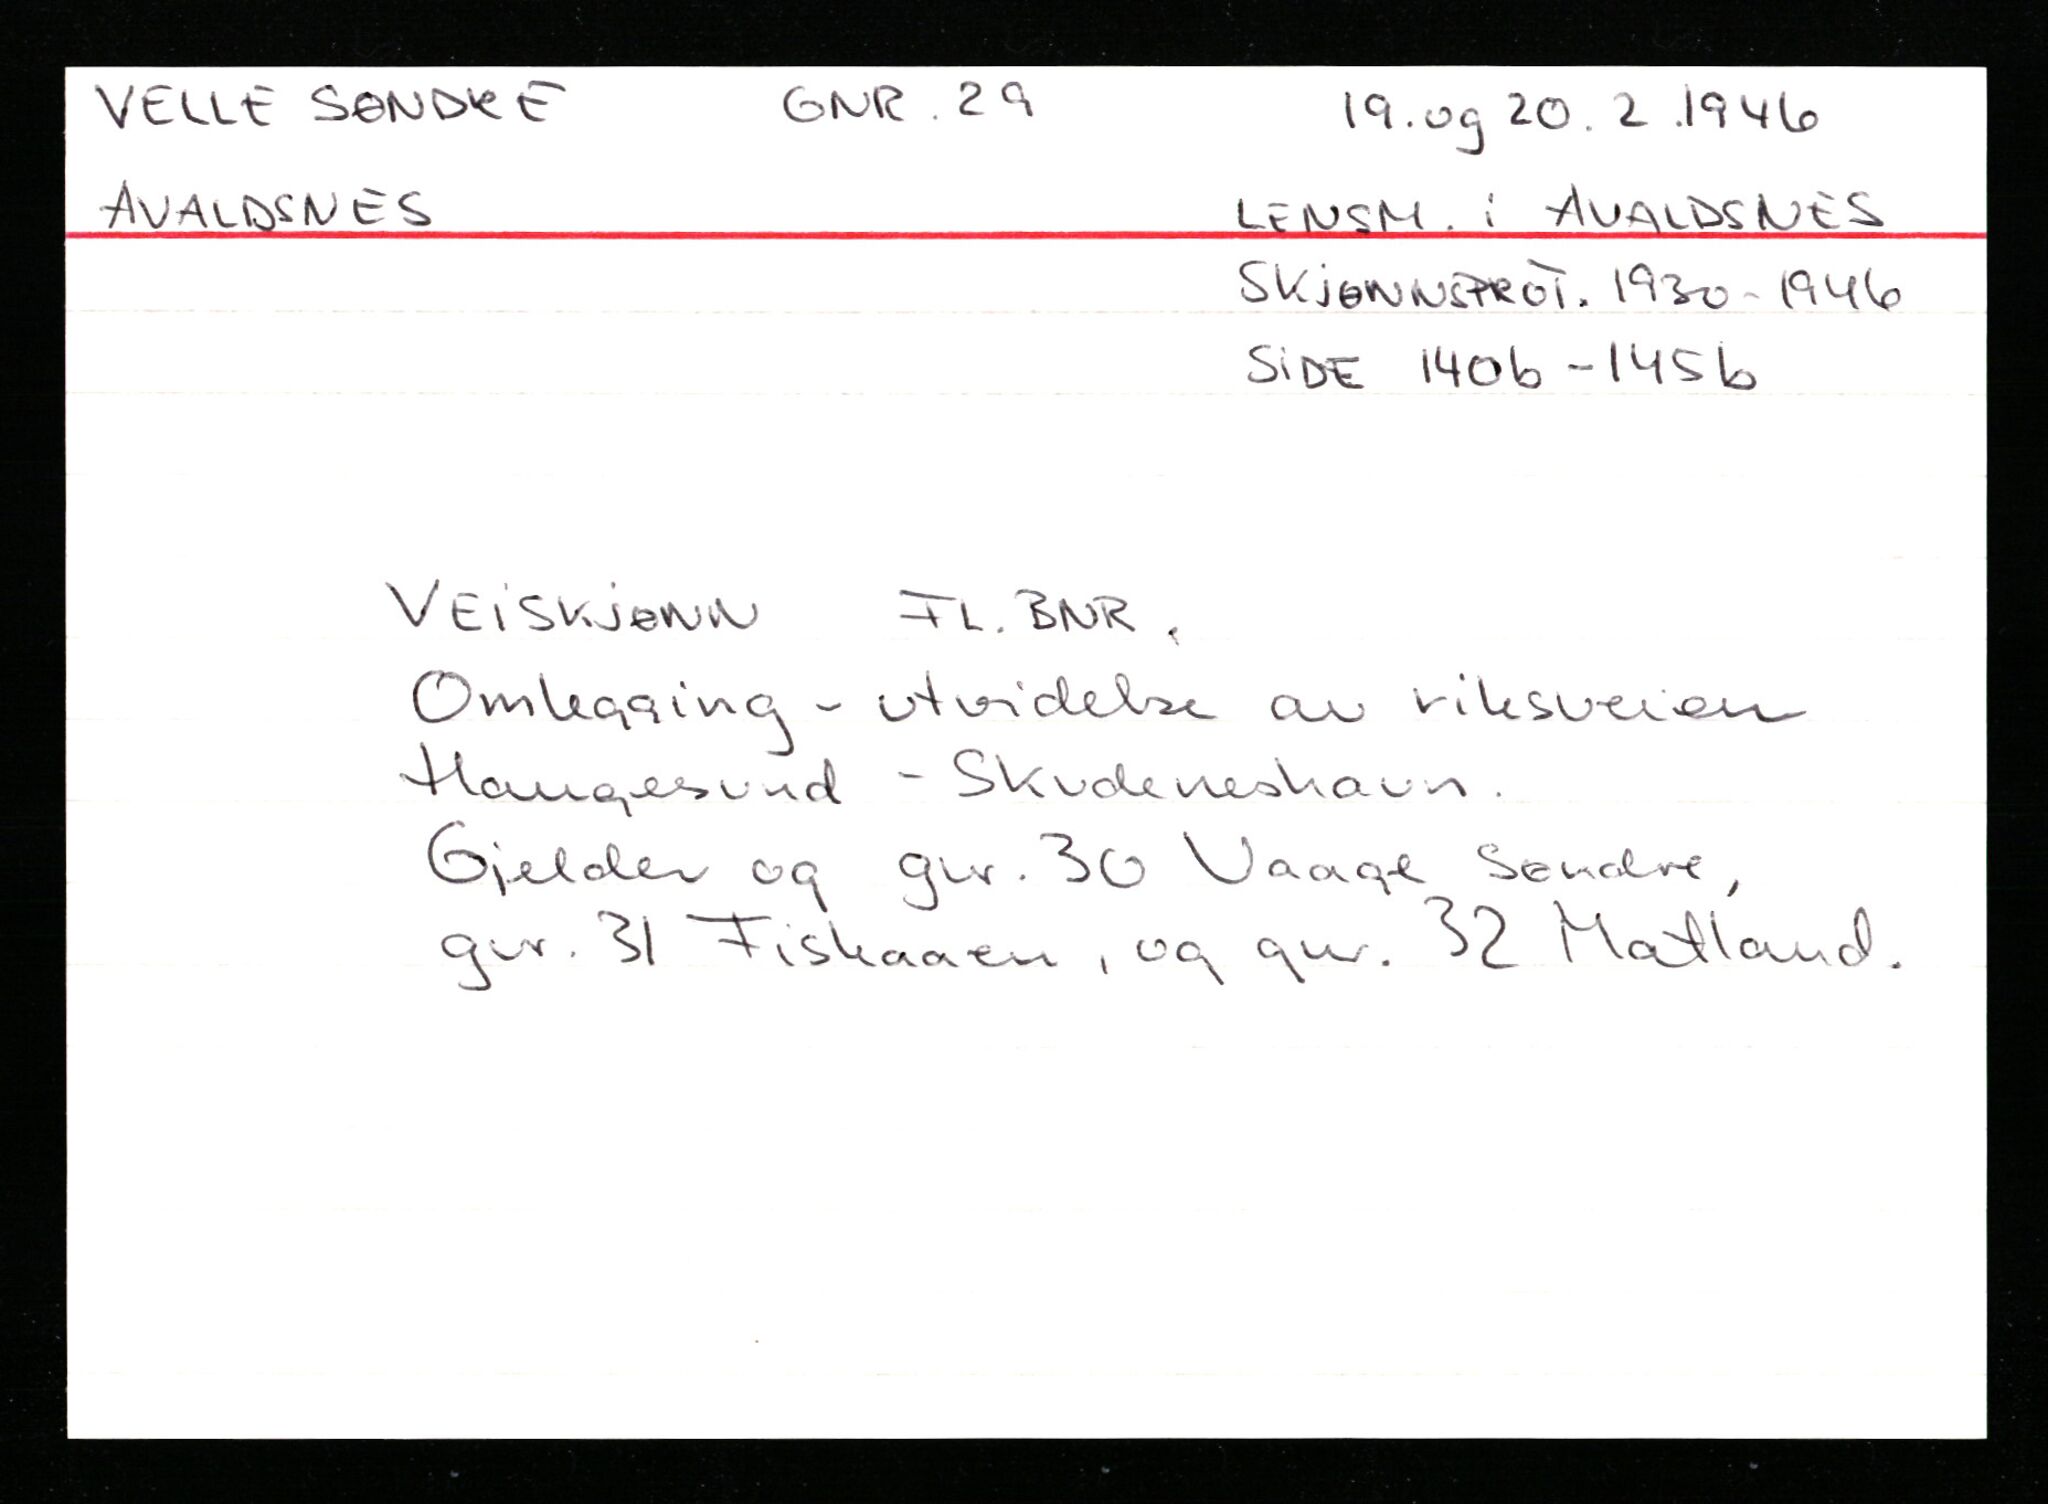 VELLE SØNDRE GNR. 29 19. og 20. 2. 1946
AVALDSNES LENSM. i AVALDSNES
SKJØNNSPROT. 1930-1946
SIDE 140b-145b
VEISKJØNN FL. BNR.
Omlegging - utvidelse av riksveien
Haugesund - Skudeneshavn.
Gjelder og gnr. 30 Vaage Søndre,
gnr. 31 Fiskaaen, og gnr. 32 Matland.